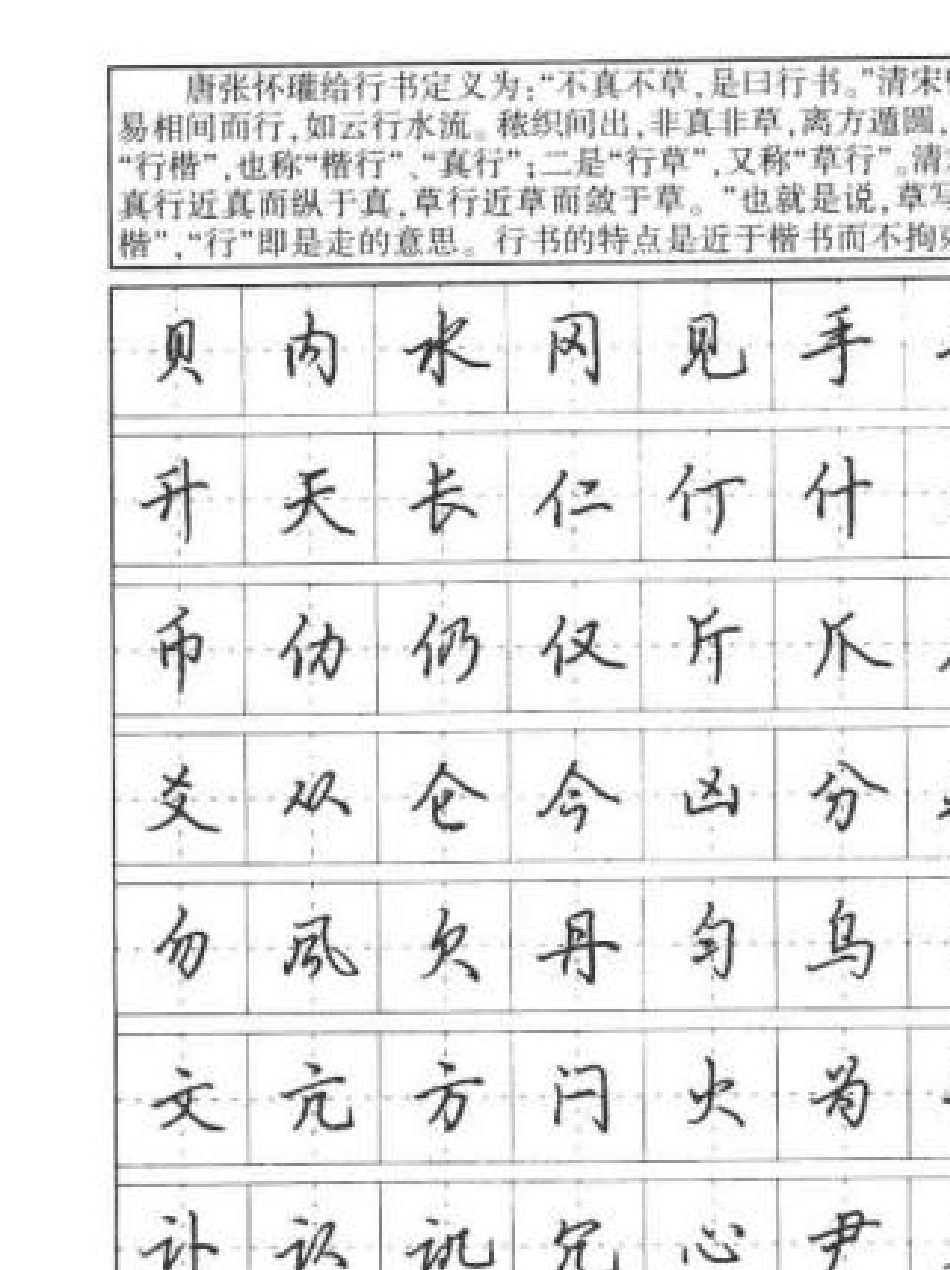 唐张怀瓘给行书定义为:“不真不草,是曰行书。”清宋
易相间而行,如云行水流。秾纤间出,非真非草,离方遁圆,
“行楷”,也称“楷行”、“真行”;二是“行草”,又称“草行”。清
真行近真而纵于真,草行近草而敛于草。”也就是说,草写
楷”,“行”即是走的意思。行书的特点是近于楷书而不拘
贝 内 水 冈 见 手
升 天 长 仁 仃 什
币 仂 仍 仅 斤 爪
爻 从 仑 今 凶 分
勿 風 欠 丹 匀 乌
文 亢 方 闩 火 为
讣 认 讥 冗 心 尹